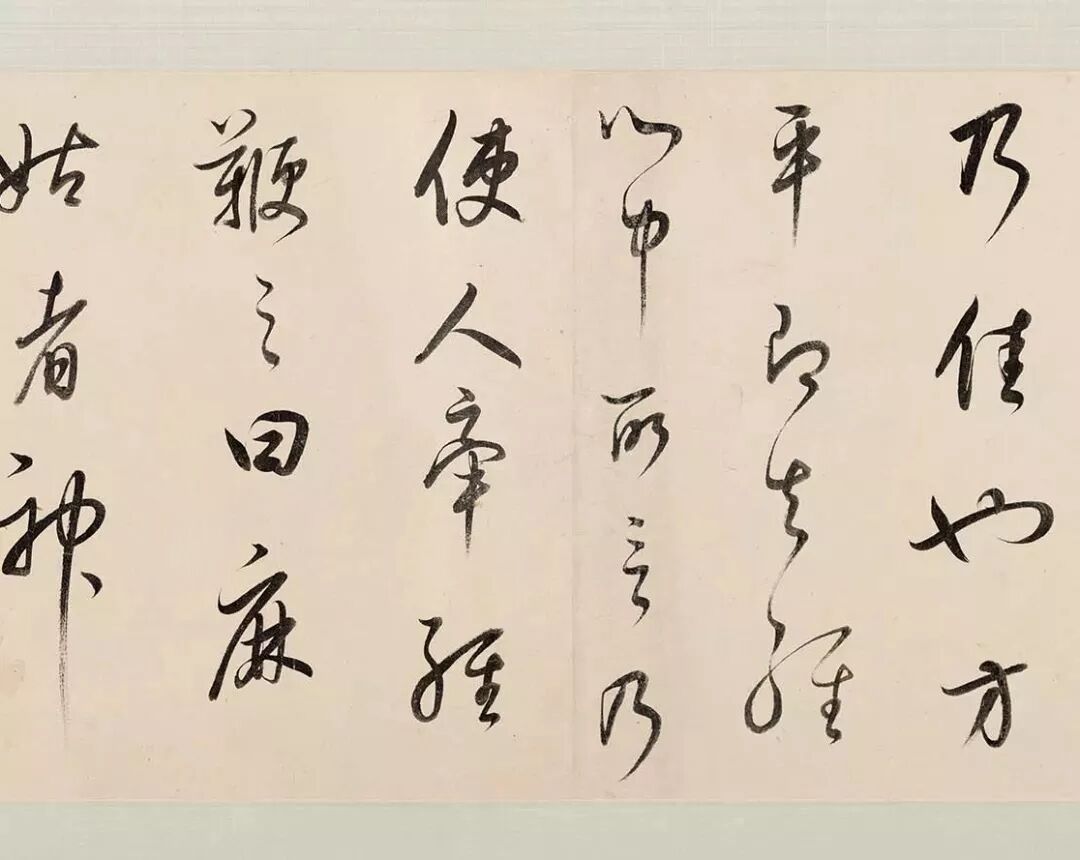 乃佳也方
平即知经
心中所言乃
使人牵经
鞭之曰麻
姑者神